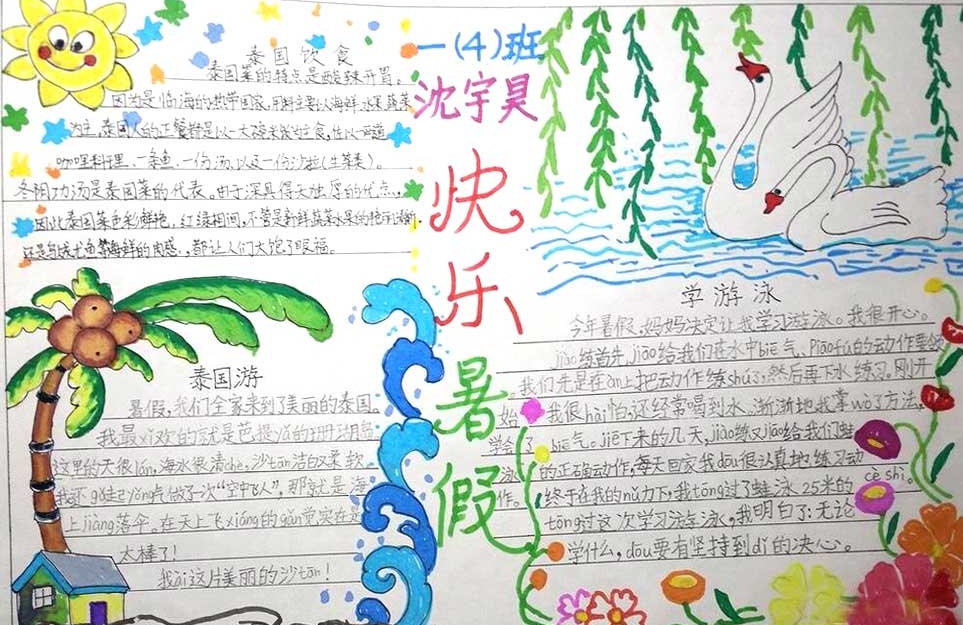 一(4)班
沈宇昊
快乐暑假
泰国饮食
泰国菜的特点是酸辣开胃。
因为是临海的热带国家,用料主要以海鲜、水果、蔬菜
为主。泰国人的正餐都是以一大碗米饭为主食,佐以一两道
咖喱料理、一条鱼、一份汤,以及一份沙拉(生菜类)。
冬阴功汤是泰国菜的代表。由于深具得天独厚的优点,
因此泰国菜色彩鲜艳,红绿相间,不管是新鲜蔬菜水果的艳
还是鱿鱼等海鲜的肉感,都让人们大饱了眼福。
泰国游
暑假,我们全家来到了美丽的泰国。
我最xǐ欢的就是芭提yǎ的珊瑚岛
这里的天很lán,海水很清chè,沙tān洁白又柔软。
我还gǔ起yǒng气做了次“空中飞人”,那就是海
上jiàng落伞。在天上飞xiáng的gǎn觉实在是
太棒了!
我ài这片美丽的沙tān!
学游泳
今年暑假,妈妈决定让我学习游泳。我很开心。
jiào练首先jiāo给我们在水中biē气、Piāofú的动作要领
我们先是在àn上把动作练shú了,然后再下水练习。刚开
始,我很hài怕,还经常喝到水、渐渐地我掌wò了方法,
学会了biē气。jiē下来的几天,jiào练又jiāo给我们蛙
泳的正确动作,每天回家我dōu很认真地练习动
作。终于在我的nǔ力下,我tōng过了蛙泳25米的
cè shì。
tōng过这次学习游泳,我明白了:无论
学什么,dōu要有坚持到dǐ的决心。